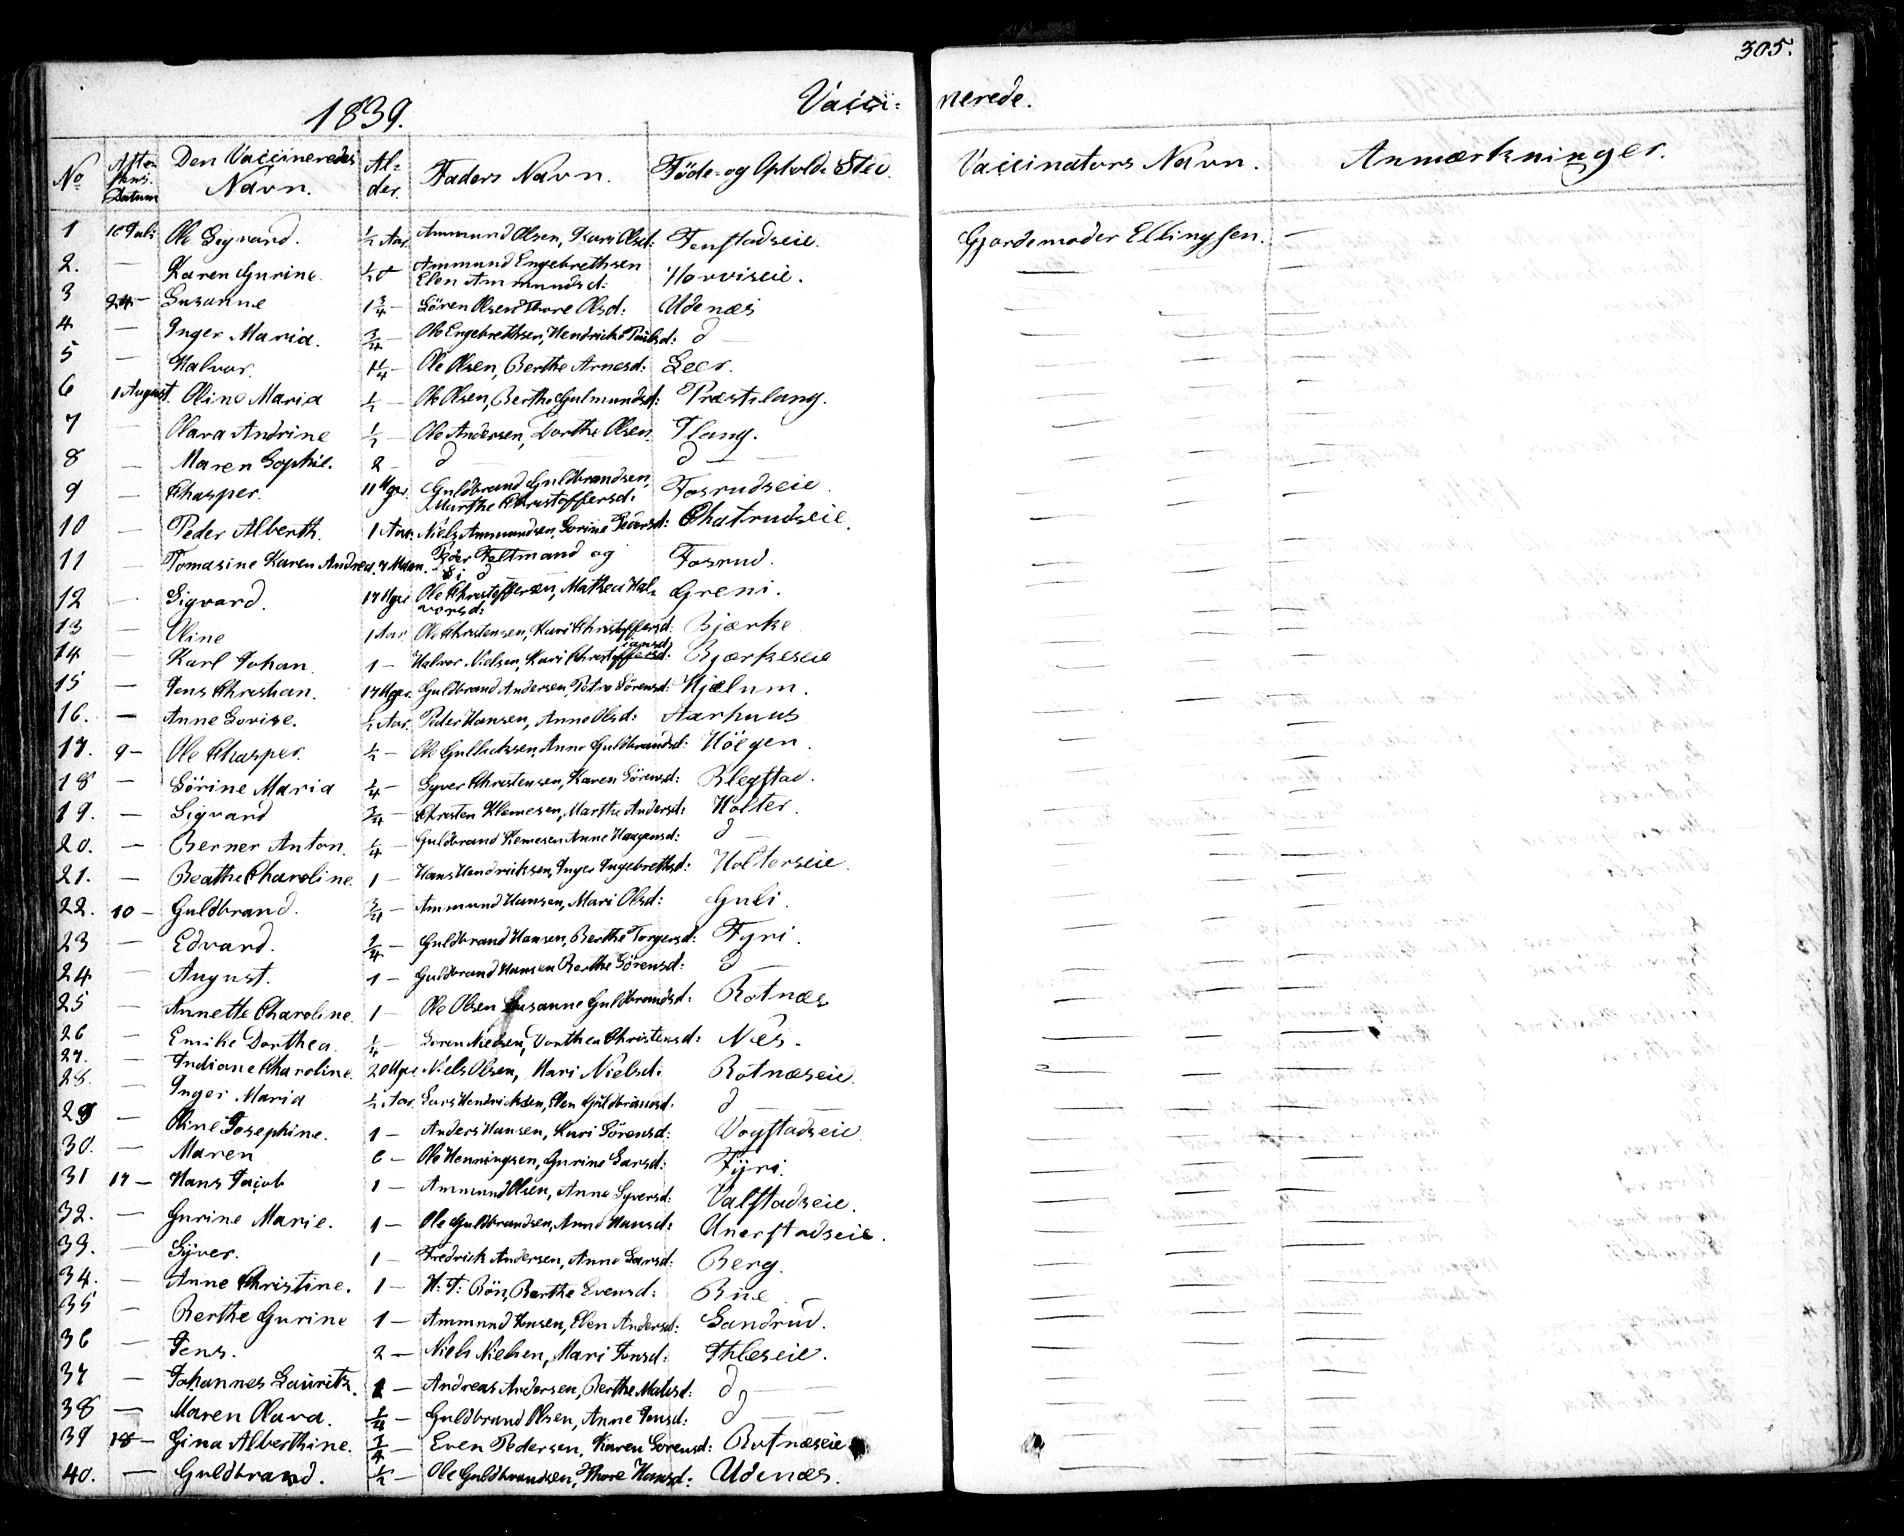 305.
1839. Vacci= nerede.
No Atte= stens Datum Den Vaccineredes Navn. Al= der. Faders Navn. Föde= og Opholds Sted. Vaccinators Navn. Anmærkninger.
1 10 Juli Ole Sigvard. ½ Aar. Ammund Olsen, Kari Olsd: Fenstadseie. Gjordemoder Ellingsen. —
2. — Karen Gurine ½ d Ammund Engebrethsen Elen Ammundsd: Horviseie. — —
3 24 — Susanne 1¾ — Sören Olsen Thore Olsd: Udenæs — —
4 — Inger Maria. ¾ — Ole Engebrethsen, Hendricke Paulsd: d — — —
5 — Halvor. 1¼ — Ole Olsen, Berthe Arnesd: Leer. — —
6 1 August. Oline Maria ½ — Ole Olsen, Berthe Gulmundsd: Præstelang. — —
7 — Olava Andrine ½ — Ole Andersen, Dorthe Olsen Flang. — —
8 — Maren Sophie. 2 — d — d — — —
9 — Chasper. 11 Uger. Guldbrand Guldbrandsen, Marthe Christoffersd: Fosrudseie. — —
10 — Peder Alberth. 1 Aar. Niels Ammundsen, Gorine Pedersd: Chatrudseie. — —
11 — Tomasine Karen Andrea. 7 Maan. Peder Feltmand og Si d Fosrud. — —
12 — Sigvard. 17 Uger Ole Christoffersen, Mathea Hal= vorsd: Greni. — —
13 — Oline 1 Aar Ole Christensen, Kari Christoffersd: Bjærke — —
14 — Karl Johan. 1 — Halvor Nielsen, Kari Christoffersd: iansd Bjærkeseie — —
15 — Jens Christian. 17 Uger. Guldbrand Andersen, Petra Sörensd: Hjælum. — —
16. — Anne Lovise. ½ Aar. Peder Hansen, Anne Olsd: Aarhuus — —
17. 9 — Ole Chasper. ½ — Ole Gullicksen, Anne Guldbrandsd: Höegen. — —
18 — Sörine Maria ¼ — Syver Christensen, Karen Sörensd: Blegstad. — —
19. — Sigvard ¾ — Christen Klemesen, Marthe Andersd: Holter. — —
20. — Berner Anton. ¼ — Guldbrand Klemesen Anne Haagensd: d — — —
21. — Beathe Charoline. 1 — Hans Hendricksen, Inger Ingebrethsd: Holterseie. — —
22. 10 — Guldbrand. ¾ — Ammund Hansen, Mari Olsd: Guli. — —
23 — Edvard. ¾ — Guldbrand Hansen, Berthe Torgersd: Fyri. — —
24 — August. 1 — Guldbrand Hansen Berthe Sörensd: d — — —
25 — Annette Charoline. 1 — Ole Olsen Susanne Guldbrandsd: Rotnæs — —
26 — Emilie Dorthea. ¼ — Soren Nielsen, Dorthea Christensd: Næs. — —
27. — Indiane Charoline. 20 Uger. Niels Olsen, Mari Nielsd: Rotnæseie. — —
28. — Inger Maria ½ Aar. Lars Hendricksen, Elen Guldbrandsd. d — — — —
29 — Oline Josephine. 1 — Anders Hansen, Kari Sörensd: Vogstadseie. — —
30. — Maren 6 — Ole Henningsen, Gurine Larsd: Fyri. — —
31 17 — Hans Jacob 1 — Ammund Olsen, Anne Syversd: Valstadseie. — —
32. — Gurine Marie. 1 — Ole Guldbrandsen, Anne Hansd: Unerstadseie. — —
33. — Syver. 1 — Fredrick Andersen, Anne Larsd: Berg. — —
34. — Anne Christine. 1 — H: T: Rön, Berthe Evensd: Bue — —
35 — Berthe Gurine 1 — Ammund Jensen, Elen Andersd: Sandrud. — —
36 — Jens. 2 — Niels Nielsen, Mari Jensd: Ihleseie. — —
37 — Johannes Lauritz. 1 — Andreas Andersen, Berthe Matisd: d — — —
38 — Maren Olava. ¼ — Guldbrand Olsen, Anne Jensd: d — — —
39 18 — Gina Alberthine. ¾ — Even Pedersen, Karen Sorensd: Rotnæseie — —
40. — Guldbrand. ½ — Ole Guldbrandsen, Thore Hansd: Udenæs. — —